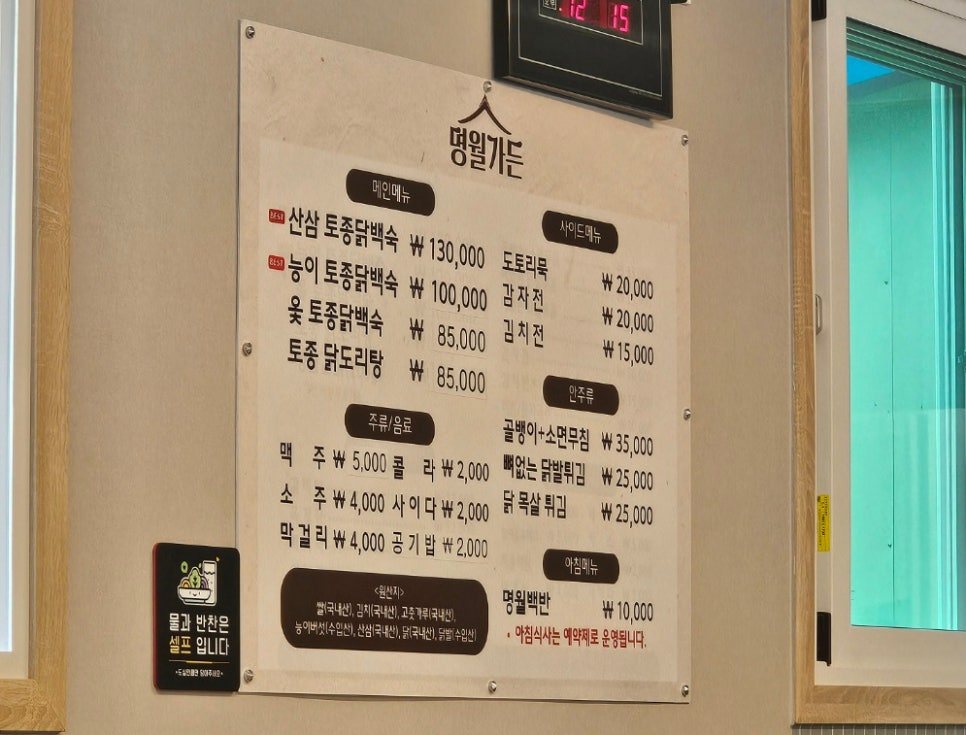 12 15
명월가든
메인메뉴
BEST 산삼 토종닭백숙 ₩ 130,000
BEST 능이 토종닭백숙 ₩ 100,000
옻 토종닭백숙 ₩ 85,000
토종 닭도리탕 ₩ 85,000
주류/음료
맥 주 ₩ 5,000 콜 라 ₩ 2,000
소 주 ₩ 4,000 사이다 ₩ 2,000
막걸리 ₩ 4,000 공기밥 ₩ 2,000
<원산지>
쌀(국내산), 김치(국내산), 고춧가루(국내산),
능이버섯(수입산), 산삼(국내산), 닭(국내산), 닭발(수입산)
사이드메뉴
도토리묵 ₩ 20,000
감자전 ₩ 20,000
김치전 ₩ 15,000
안주류
골뱅이+소면무침 ₩ 35,000
뼈없는 닭발튀김 ₩ 25,000
닭 목살 튀김 ₩ 25,000
아침메뉴
명월백반 ₩ 10,000
* 아침식사는 예약제로 운영됩니다.
물과 반찬은
셀프 입니다